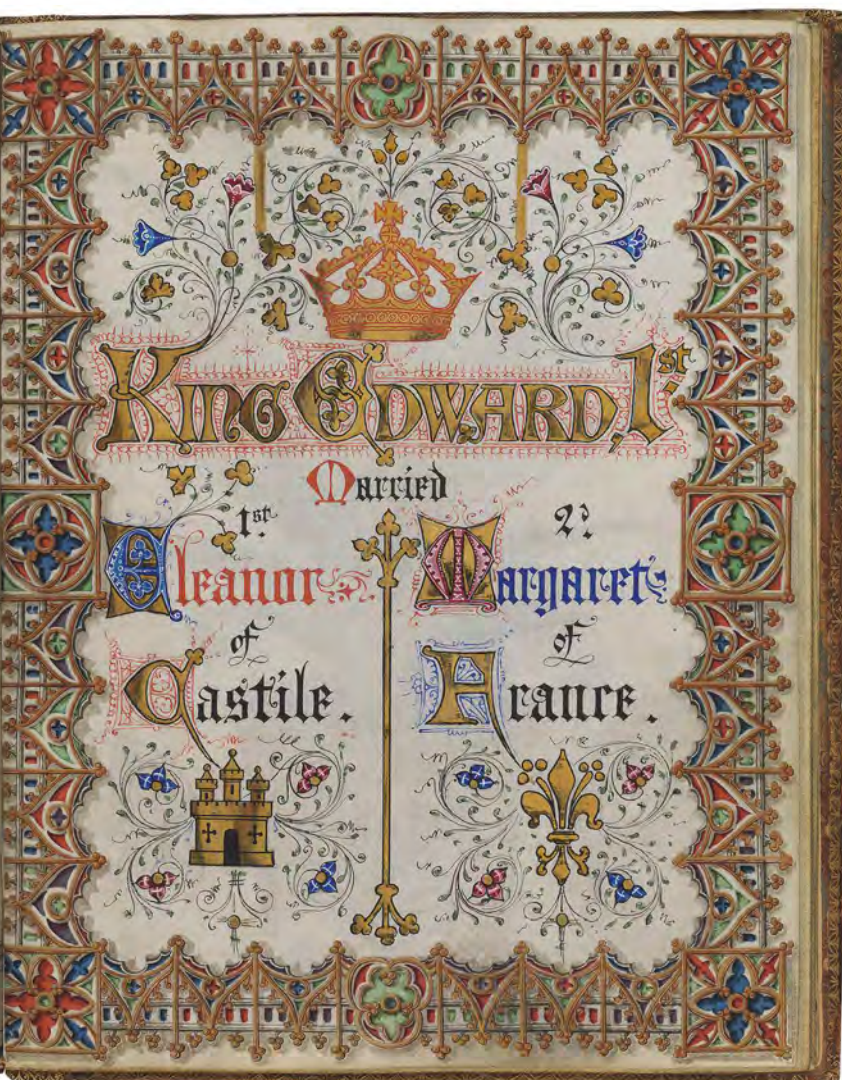 King Edward, 1st.
Married
1st.
Eleanor
of
Castile.
2d.
Margaret
of
France.